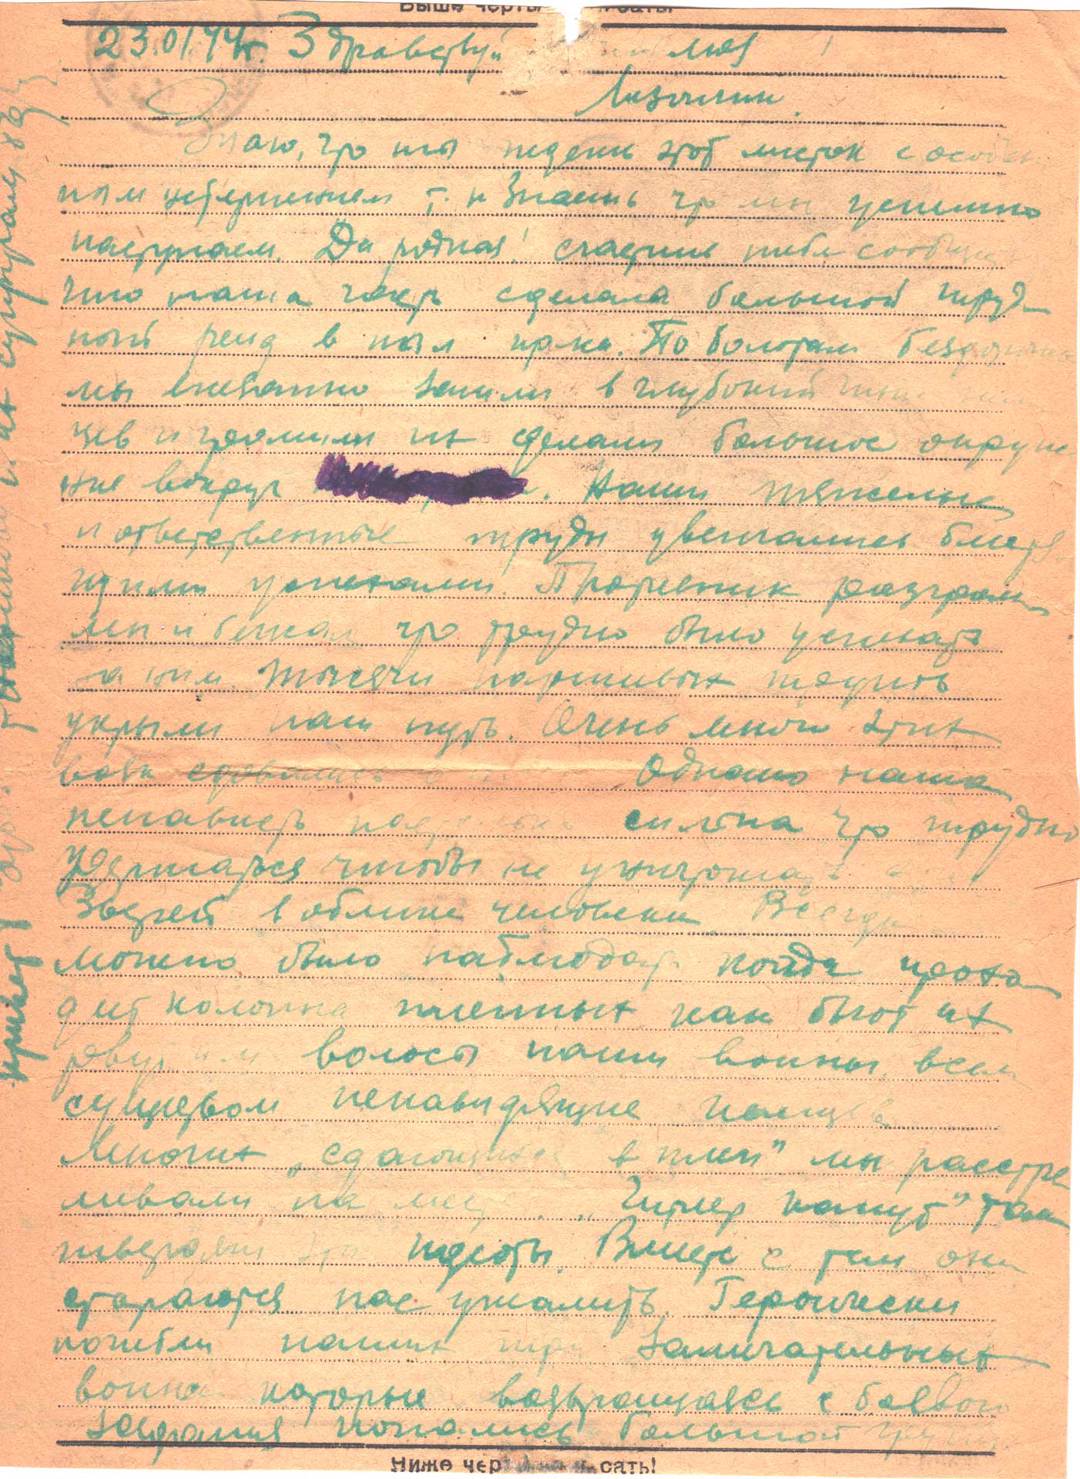 Выше черты
23.01.44г. Здравствуй моя
Знаю, что ты ждешь этот листок с особен
ным нетерпением т.к знаешь что мы успешно
наступаем. Да родная! счастлив тебе сообщить
что наша часть сделала большой труд
ный рейд в тыл врага. По болотам
мы внезапно зашли в глубокий тыл
цев и громили их сделали большое окруже
ние вокруг Наши тяжелые
и ответственные труды увенчались блестя
щими успехами. Противник разгромлен
и бежал что трудно было успевать
за ним. Тысячи паршивых
укрыли наш путь. Очень много этих
сдавались Однако наша
ненависть настолько сильна что трудно
удержаться чтобы не уничтожать
Зверей в облике человека. Всегда
можно было наблюдать когда прохо
дит колонна пленных как бьют их
рвут им волосы наши воины всем
существом ненавидящие немцев
Многих „сдающихся в плен" мы расстре
ливали на месте. „Гитлер капут" так
твердят эти идиоты. Вместе с тем они
стараются нас ужалить. Героически
погибли наших три замечательных
воина которые возвращаясь с боевого
задания попались большой группе
Ниже черты не писать!
привет